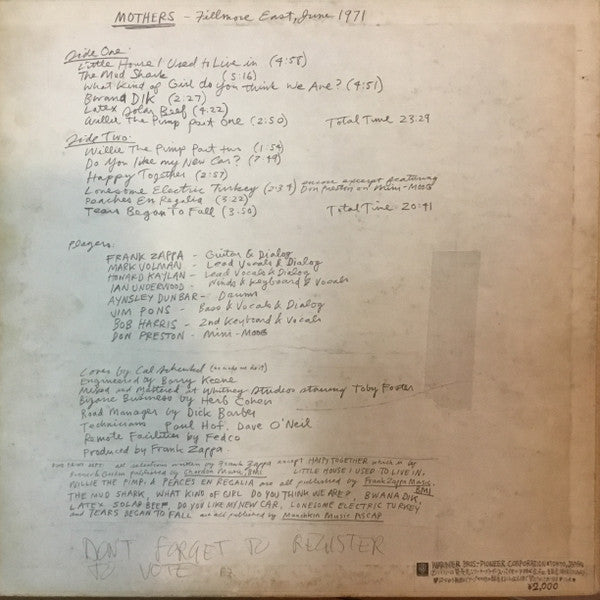 MOTHERS - Fillmore East, June 1971
Side One:
Little House I Used to Live in (4:58)
The Mud Shark (5:16)
What Kind of Girl do you think we Are? (4:51)
Bwana Dik (2:27)
Latex Solar Beef (4:22)
Willie The Pimp Part One (2:50) Total Time 23:29
Side Two:
Willie The Pimp Part two (1:54)
Do You like my New Car? (7:49)
Happy Together (2:57)
Lonesome Electric Turkey (2:34) encore excerpt featuring Don Preston on Mini-Moog
Peaches En Regalia (3:22)
Tears Began To Fall (3:50) Total Time 20:41
Players:
FRANK ZAPPA - Guitar & Dialog
MARK VOLMAN - Lead Vocals & Dialog
HOWARD KAYLAN - Lead Vocals & Dialog
IAN UNDERWOOD - Winds & Keyboard & Vocals
AYNSLEY DUNBAR - Drums
JIM PONS - Bass & Vocals & Dialog
BOB HARRIS - 2nd Keyboard & Vocals
DON PRESTON - Mini-MOOG
Cover by Cal Schenkel
Engineered by Barry Keene
Mixed and Mastered at Whitney Studios starring Toby Foster
Bizarre Business by Herb Cohen
Road Manager by Dick Barber
Technicians Paul Hof, Dave O'Neil
Remote Facilities by Fedco
Produced by Frank Zappa.
all selections written by Frank Zappa except HAPPY TOGETHER which is by
published by Chardon Music, BMI LITTLE HOUSE I USED TO LIVE IN,
WILLIE THE PIMP, & PEACES EN REGALIA are all published by Frank Zappa Music, BMI
THE MUD SHARK, WHAT KIND OF GIRL DO YOU THINK WE ARE?, BWANA DIK,
LATEX SOLAR BEEF, DO YOU LIKE MY NEW CAR, LONESOME ELECTRIC TURKEY
and TEARS BEGAN TO FALL are all published by Munchkin Music ASCAP
DON'T FORGET TO REGISTER
TO VOTE
WARNER BROS-PIONEER CORPORATION, TOKYO, JAPAN
¥2,000